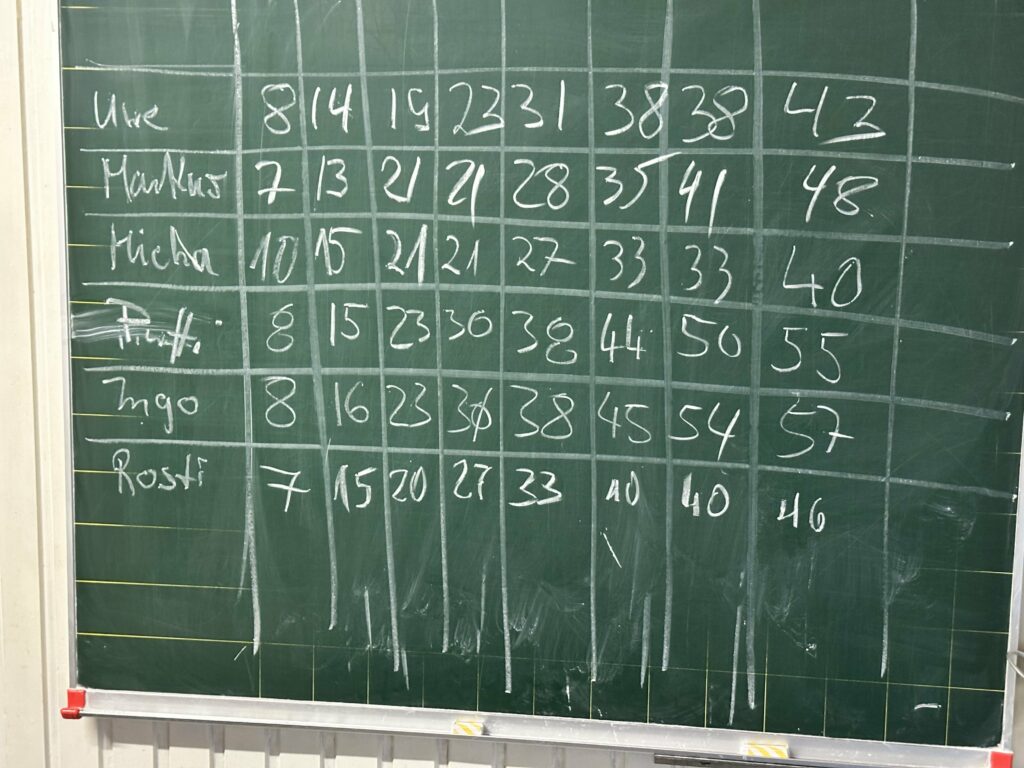 Uwe 8 14 19 23 31 38 38 43
Markus 7 13 21 21 28 35 41 48
Micha 10 15 21 21 27 33 33 40
8 15 23 30 38 44 50 55
Ingo 8 16 23 30 38 45 54 57
Rosti 7 15 20 27 33 40 40 46